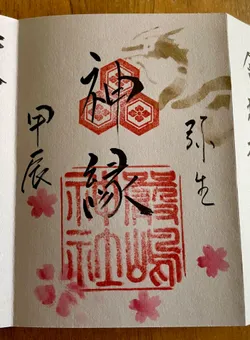 弥生
神縁
甲辰
嚴嶋
神社